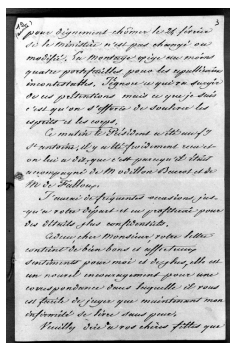 3
pour dignement chômer le 24 février
si le Ministère n'est pas changé ou
modifié. La Montagne exige au moins
quatre portefeuilles pour les républicains
incontestables. J'ignore ce qui en
de ces prétentions mais ce que je sais
c'est qu'on s'efforce de soulever les
esprits et les corps.
Ce matin le Président a été au fg
St antoine; il y a été froidement reçu et
on lui a dit, que c'est parcequ'il était
accompagné de M odillon Barrot et de
M de Falloux.
J'aurai de fréquentes occasions jus-
qu'à votre départ et en profiterai pour
des détails plus confidentiels.
Adieu cher Monsieur, votre lettre
contient de bien bons et affectueux
sentiments pour moi et de plus, elle est
un nouvel encouragement pour une
correspondance dans laquelle il vous
est facile de juger que maintenant mon
infirmité se livre sans peur.
Veuillez dire à vos chères filles que